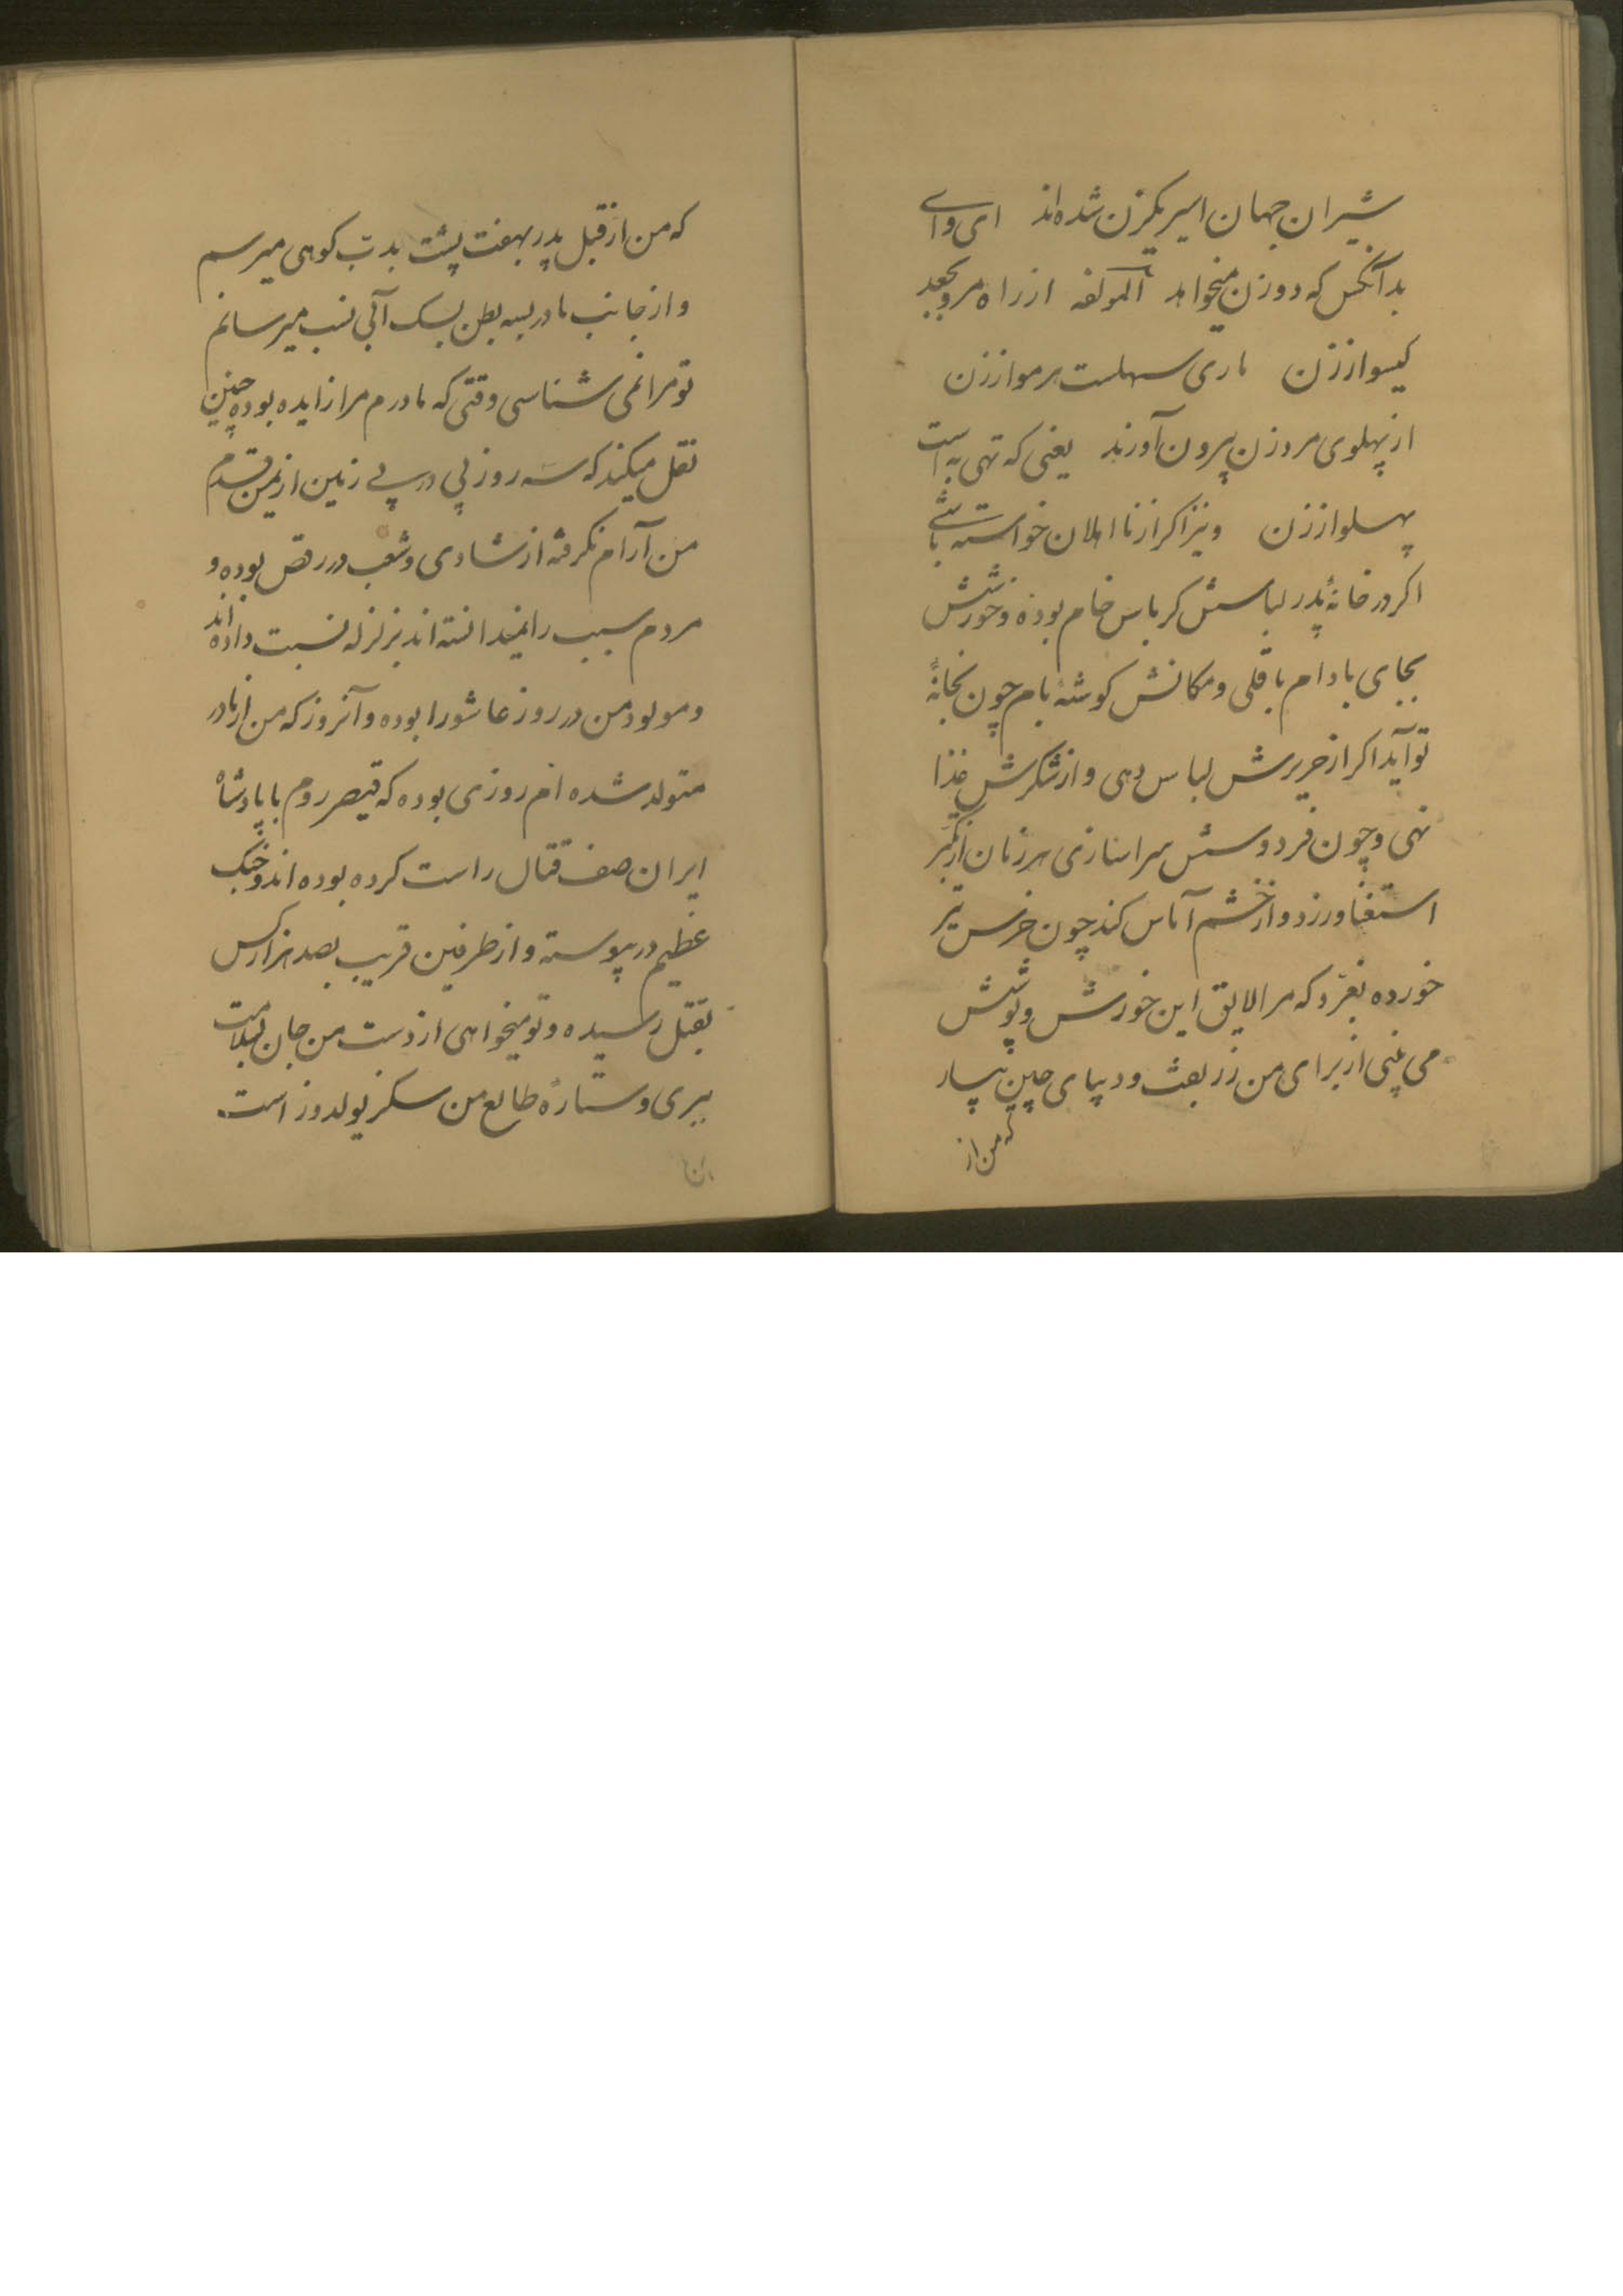 شیران جهان اسیر یکزن شده‌اند ای وای
بد آنکس که دو زن میخواهد المولفه از راه مرو بجعد
کیسو از زن ماری سهلست هر مو از زن
از پهلوی مرد زن برون آورند یعنی که تهی به است
پهلو از زن و نیز اکر از نااهلان خواسته باشی
اکر در خانهٔ پدر لباسش کرباس خام بوده و خورشش
بجای بادام باقلی و مکانش کوشهٔ بام چون بخانهٔ
تو آید اکر از حریرش لباس دهی و از شکرش غذا
نهی و چون فردوسش سرا سازی هر زمان از کبر
استغنا ورزد و از خشم آماس کند چون خرس تیر
خورده بغرّد که مرا لایق این خورش و پوشش
می بینی از برای من زربفت و دیبای چین بیار
که من از
که من از قبل پدر بهفت پشت بدبّ کوهی میرسم
و از جانب مادر بسه بطن بسک آبی نسب میرسانم
تو مرا نمی شناسی وقتی که مادرم مرا زاییده بوده چنین
نقل میکند که سه روز پی در پی زمین از یمن قدم
من آرام نکرفته از شادی و شعب در رقص بوده و
مردم سبب را نمیدانسته اند بزلزله نسبت داده اند
و مولود من در روز عاشورا بوده و آنروز که من از مادر
متولد شده ام روزی بوده که قیصر روم با پادشاه
ایران صف قتال راست کرده بوده اند و جنک
عظیم در پیوسته و از طرفین قریب بصد هزار کس
بقتل رسیده و تو میخواهی از دست من جان بسلامت
ببری و ستارهٔ طالع من سکز یولدوز است